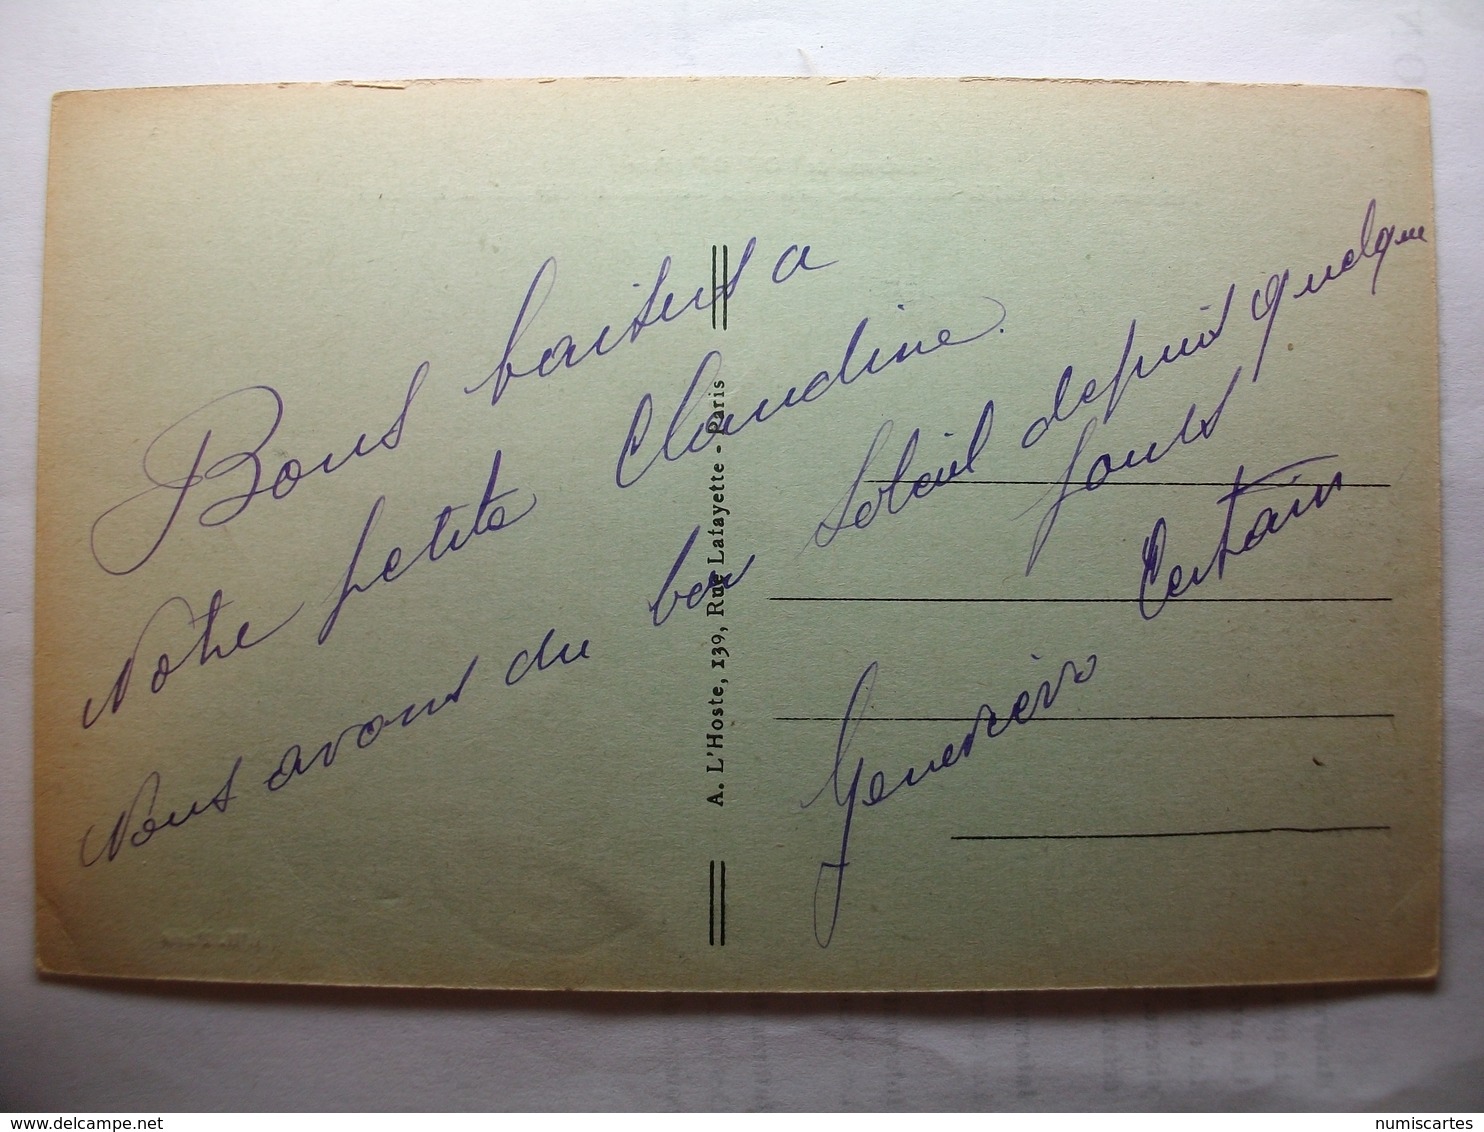 Bons baisers a
Notre petite Claudine.
Nous avons du bon soleil depuis quelque
jours
Geneviève Certain
A. L'Hoste, 139, Rue Lafayette - Paris
numiscartes